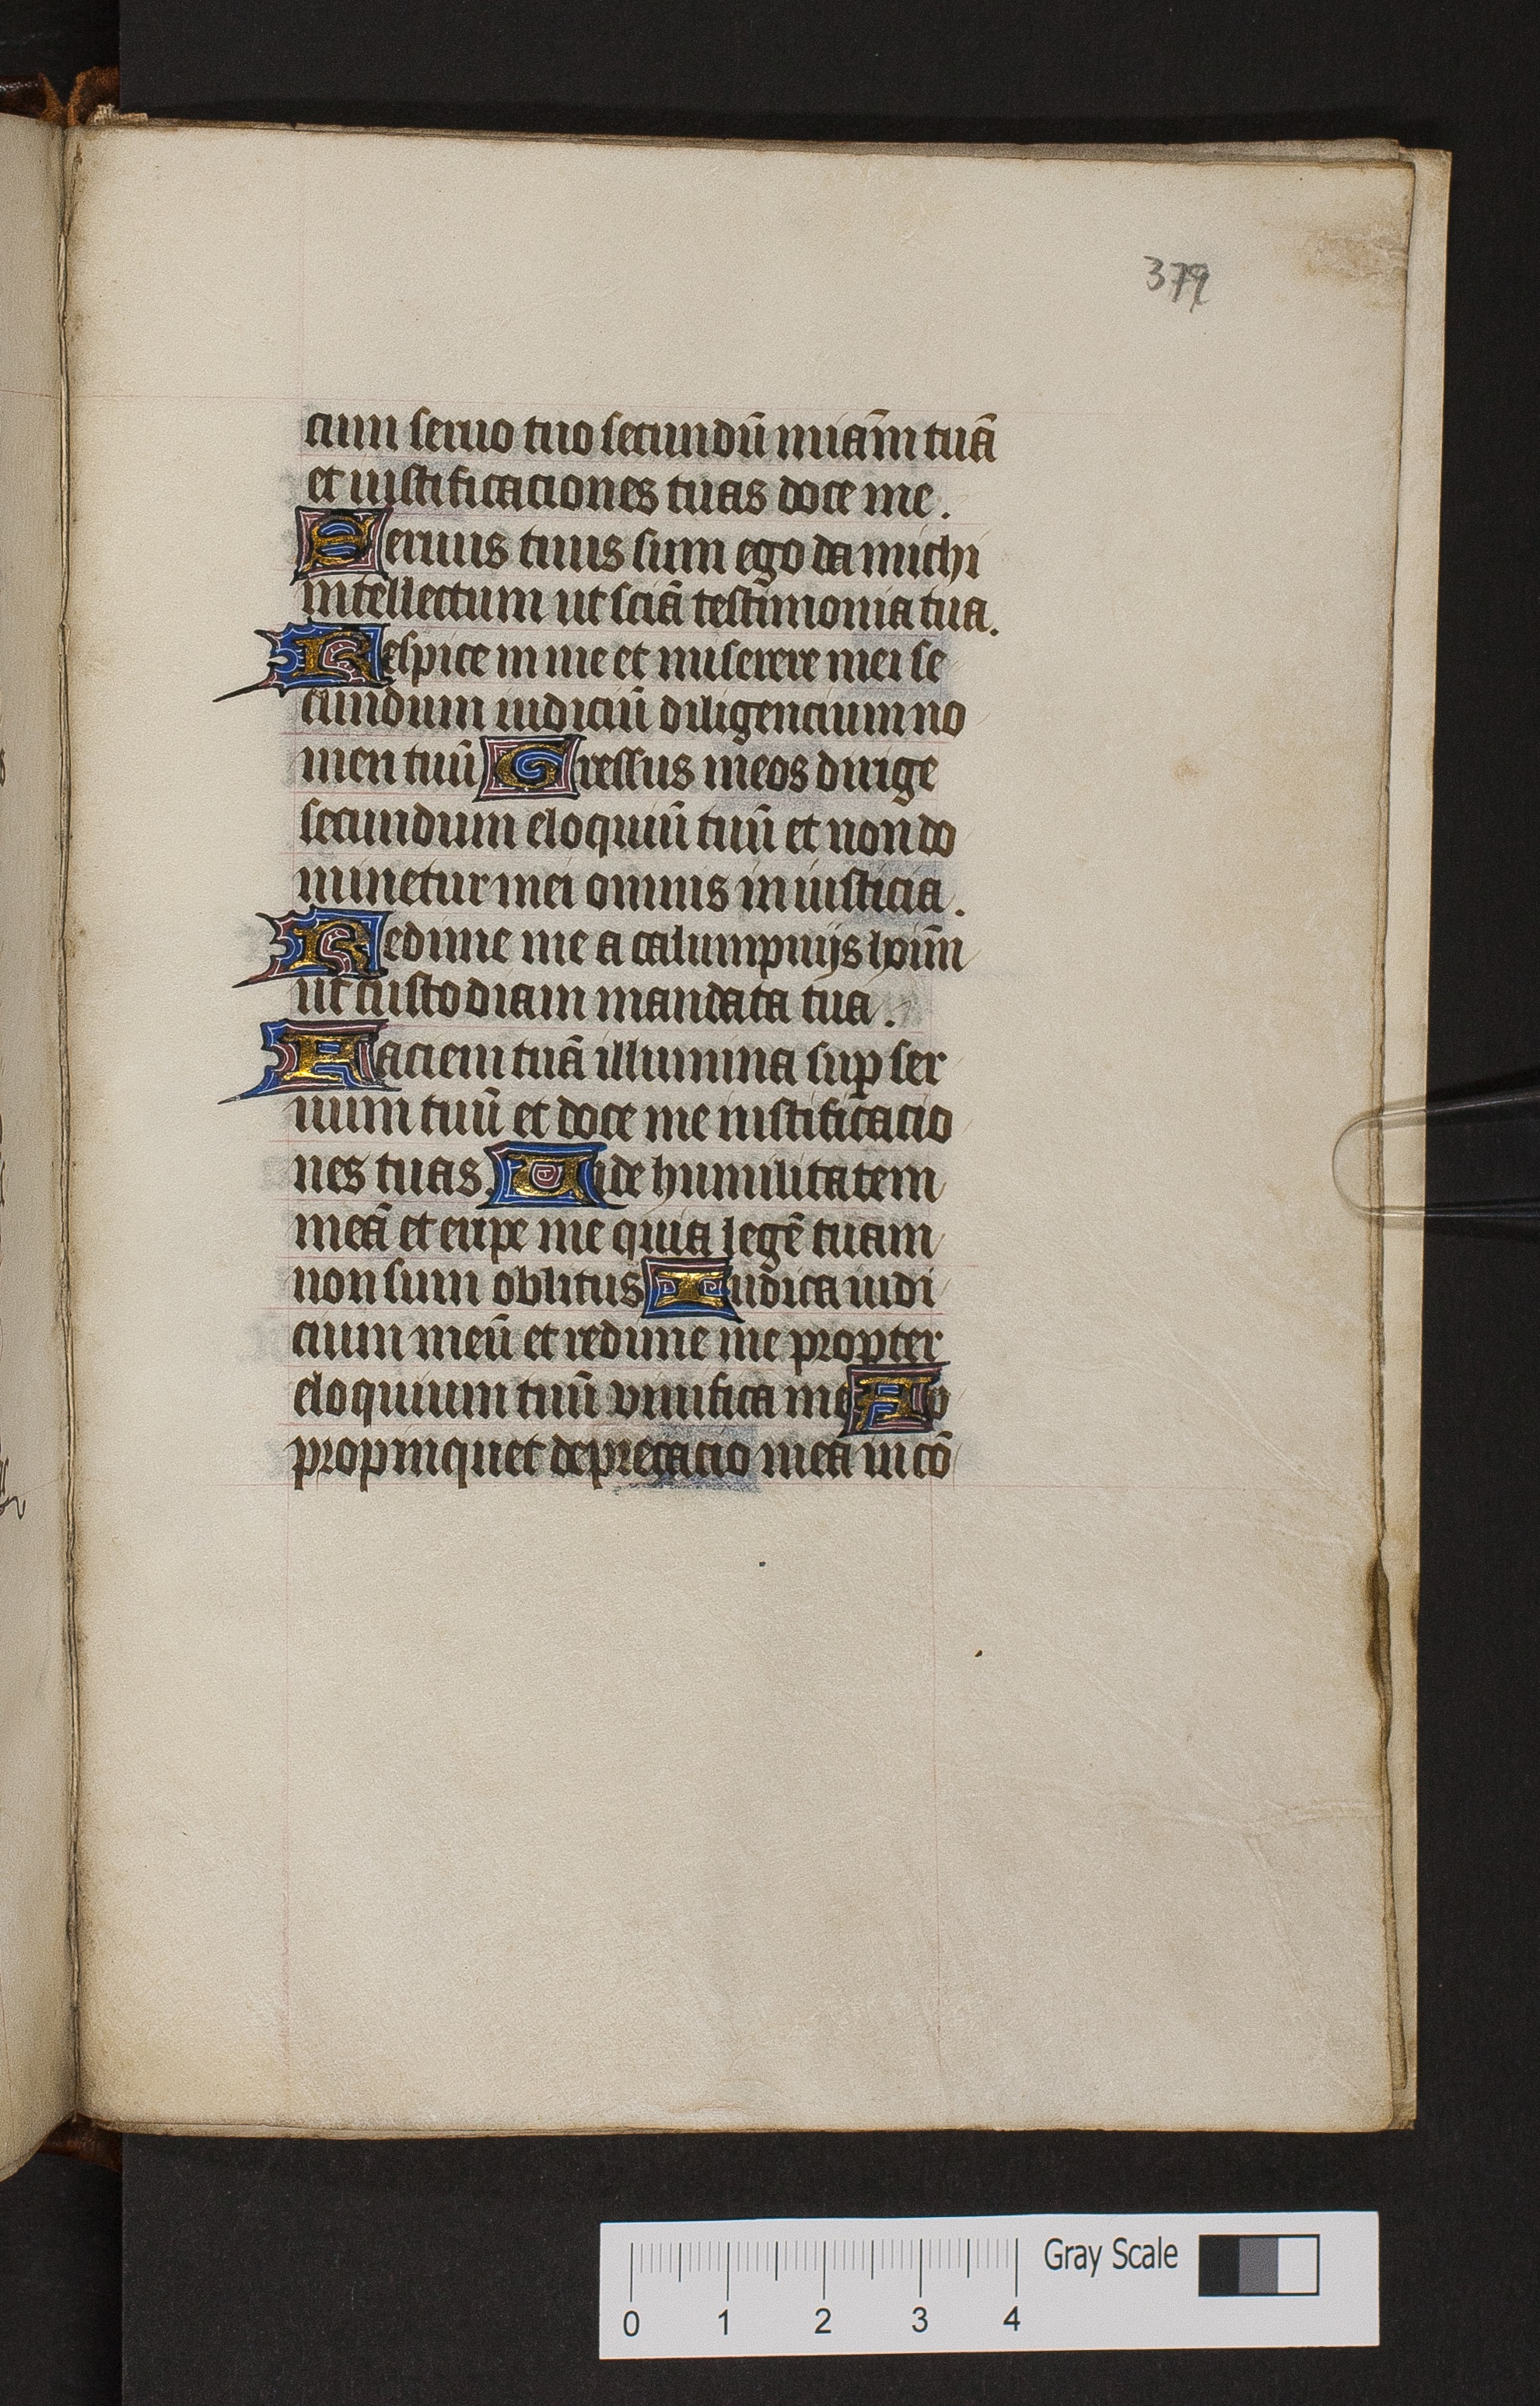 379
cum seruo tuo secundū miām tuā
et iustificaciones tuas doce me.
Seruus tuus sum ego da michi
intellectum ut sciā testimonia tua.
Respice in me et miserere mei se
cundum iudiciū diligencium no
men tuū Gressus meos dirige
secundum eloquiū tuū et non do
minetur mei omnis iniusticia.
Redime me a calumpnijs hoīm
ut custodiam mandata tua.
Faciem tuā illumina suꝑ ser
uum tuū et doce me iustificacio
nes tuas. Vide humilitatem
meā et eripe me quia legē tuam
non sum oblitus Iudica iudi
cium meū et redime me propter
eloquium tuū viuifica me Ap
propinquet deprecacio mea in cō
Gray Scale
0 1 2 3 4